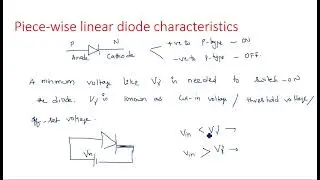 Piece-wise linear diode characteristics
P N
Anode Cathode
+ve to P-type - ON
-ve to P-type - OFF
A minimum voltage like Vγ is needed to switch-ON
the diode. Vγ is known as Cut-in voltage / threshold voltage/
off-set voltage.
Vin
Vin < Vγ →
Vin > Vγ →